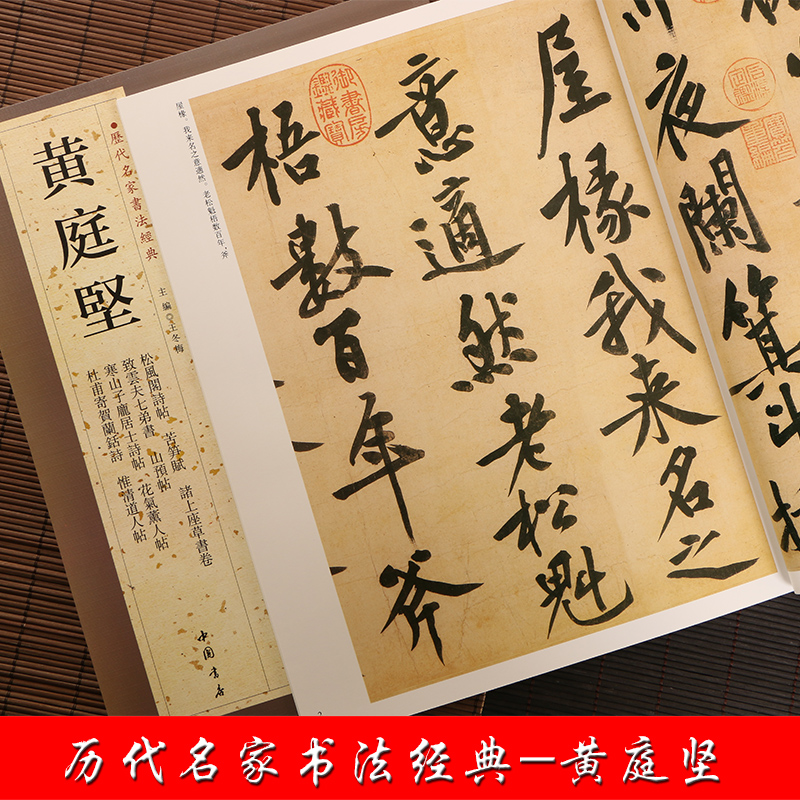 黄庭堅
•歷代名家書法經典
主編◎王冬梅
松風閣詩帖 苦筍賦 諸上座草書卷
致雲夫七弟書 山預帖
寒山子龐居士詩帖、花氣薰人帖
杜甫寄賀蘭銛詩 惟清道人帖
中国書店
屋椽。我来名之意適然。老松魁梧数百年,斧
川夜闌箕斗
屋椽我来名之
意適然老松魁
梧數百年斧
御書房鑑藏寶
历代名家书法经典—黄庭坚